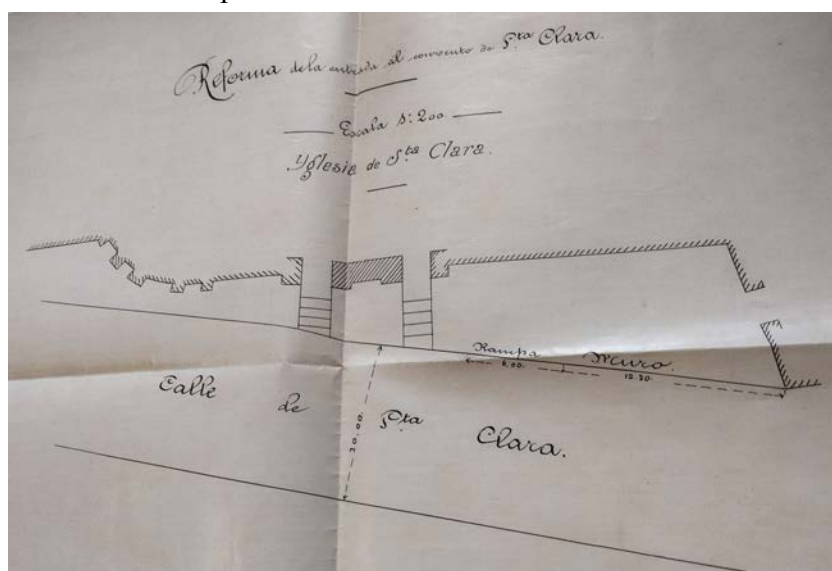 Reforma de la entrada al convento de Sta Clara.
Escala 1:200
Yglesia de Sta Clara.
Rampa Muro.
6.60. 12.20.
Calle de Sta Clara.